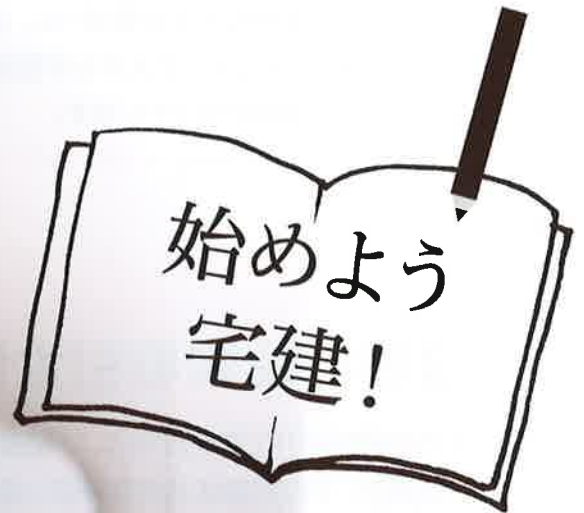 始めよう
宅建！